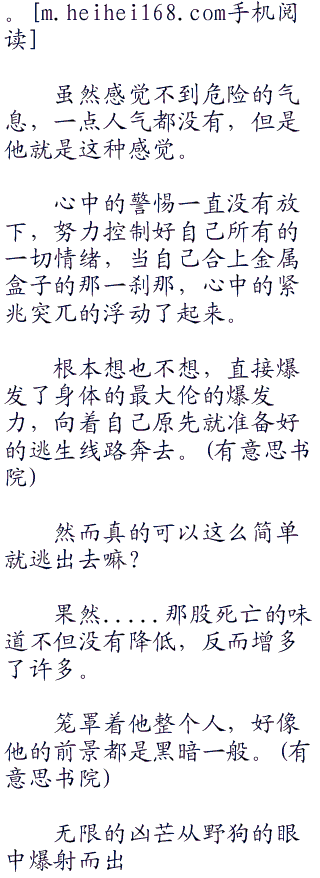 。[m.heihei168.com手机阅
读]
虽然感觉不到危险的气
息，一点人气都没有，但是
他就是这种感觉。
心中的警惕一直没有放
下，努力控制好自己所有的
一切情绪，当自己合上金属
盒子的那一刹那，心中的紧
兆突兀的浮动了起来。
根本想也不想，直接爆
发了身体的最大伦的爆发
力，向着自己原先就准备好
的逃生线路奔去。(有意思书
院)
然而真的可以这么简单
就逃出去嘛?
果然.....那股死亡的味
道不但没有降低，反而增多
了许多。
笼罩着他整个人，好像
他的前景都是黑暗一般。(有
意思书院)
无限的凶芒从野狗的眼
中爆射而出